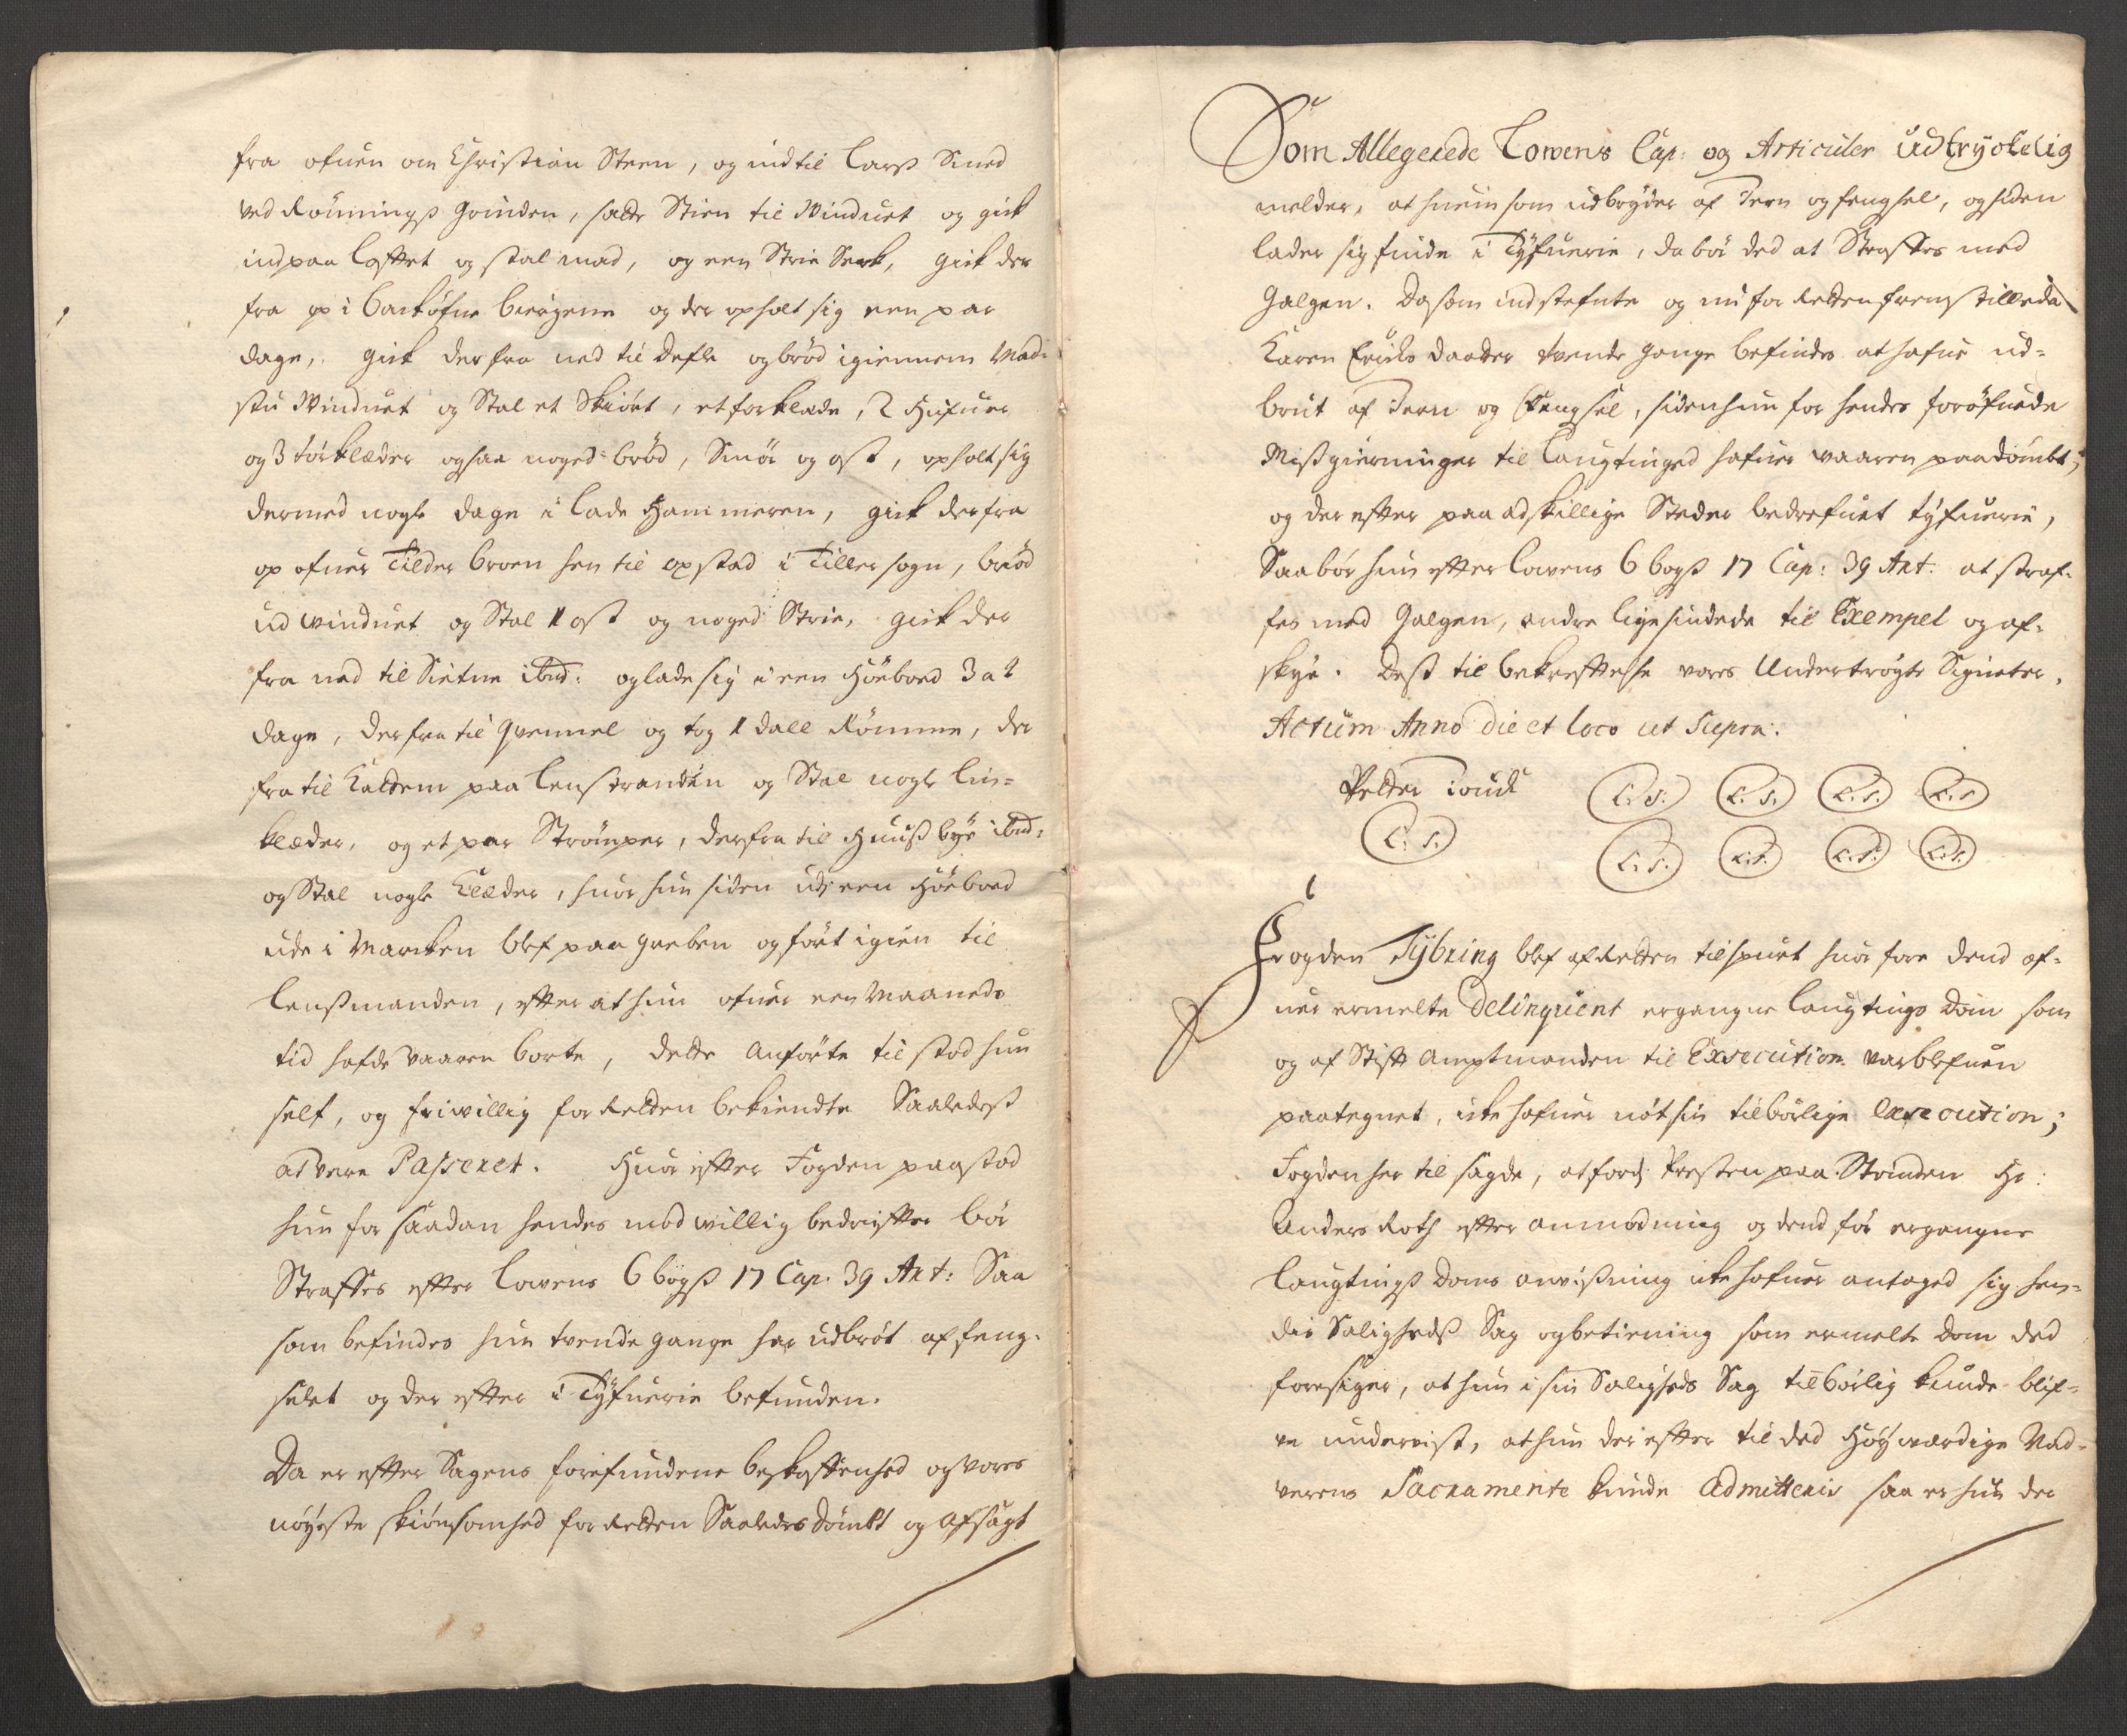 fra ofuen om Christian Steen, og indtil Lars Smed
ved Rønnings Grinden, satte Stien til Winduet og gik
ind paa loftet og stal mad, og een Strie Serk, gik der
fra op i barkøfue biergene og der opholt sig een par
dage, gik der fra ned til Defle og brød igiennem Mad¬
stu Winduet og Stal et Skiørt, et forklæde, 2 Hufuer
og 3 tørklæder og saa noged brød, Smør og ost, opholt sig
dermed nogle dage i lade Hammeren, gik derfra
op ofuer Tilder broen hen til opstad i Tiller sogn, brød
ud winduet og Stal 1 ost og noged Strie, gik der
fra ned til Sietne ibid: og lade sig i een Høeboed 3 a 4
dage, derfra til Quennel og tog 1 dall Rømme, der
fra til Kaldem paa lenstranden og Stal nogle lin¬
klæder, og et par Strømper, derfra til Huusbye ibid:
og Stal nogle Klæder, huor hun siden udj een Høeboed
ude i Marcken blef paagreben og ført igien til
lensmanden, efter at hun ofuer een Maaneds
tid hafde vaaren borte, dette anførte tilstod hun
self, og friwillig for Retten bekiendte Saaledeß
at vere Passeret. Huor efter Fogden paastod
hun for saadan hendes modwillig bedrifter bør
Straffes efter lowens 6 bogß 17 Cap: 39 Art: Saa
som befindes hun tvende gange har udbrøt af feng¬
selet og der efter i Tyfuerie befunden.
Da er efter Sagens forefundene beskaffenhed og vores
nøyeste skiønsomhed for Retten Saaledes dømbt og afsagt
Som Allegerede Lowens Cap: og Articuler udtryckelig
melder, at huem som udbryder af Jern og fengsel, og siden
lader sig finde i Tyfuerie, da bør ded at Straffes med
Galgen. Da som indstefnte og nu for Retten fremstillede
Karen Erichs daatter tvende gange befindes at hafue ud¬
brut af Jern og Fengsel, siden hun for hendes forøfuede
Misgierninger til Laugtinged hafuer vaaren paadømbt,
og der efter paa adskillige Steder bedrefuet tyfuerie,
Saa bør hun efter lowens 6 bogß 17 Cap: 39 Art: at straf¬
fes med Galgen, andre ligesindede til Exempel og af¬
skye. Deß til bekreftelse vores Undertrøgte Signeter.
Actum Anno die et loco ut Supra.
Petter Touch L.S. L.S. L.S. L.S.
L.S. L.S. L.S. L.S. L.S.
Fogden Tybring blef af Retten tilspurt huor fore dend of¬
uer ermelte Delinquent ergangne laugtings Dom som
og af Stift Amptmanden til Execution var blefuen
paategnet, icke hafuer nøt sin tilbørlige Execution;
Fogden her til sagde, at fordj Presten paa Strinden Hr:
Anders Roth efter anmodning og dend før ergangne
laugtingß Doms anvißning icke hafuer antaged sig hen¬
des Saligheds Sag og betiening som ermelte dom ded
foresiger, at hun i sin Saligheds Sag tilbørlig kunde blif¬
ve undervist, at hun der efter til ded Høyværdige Nad¬
verens Sacramente kunde Admitteris saa er hun der